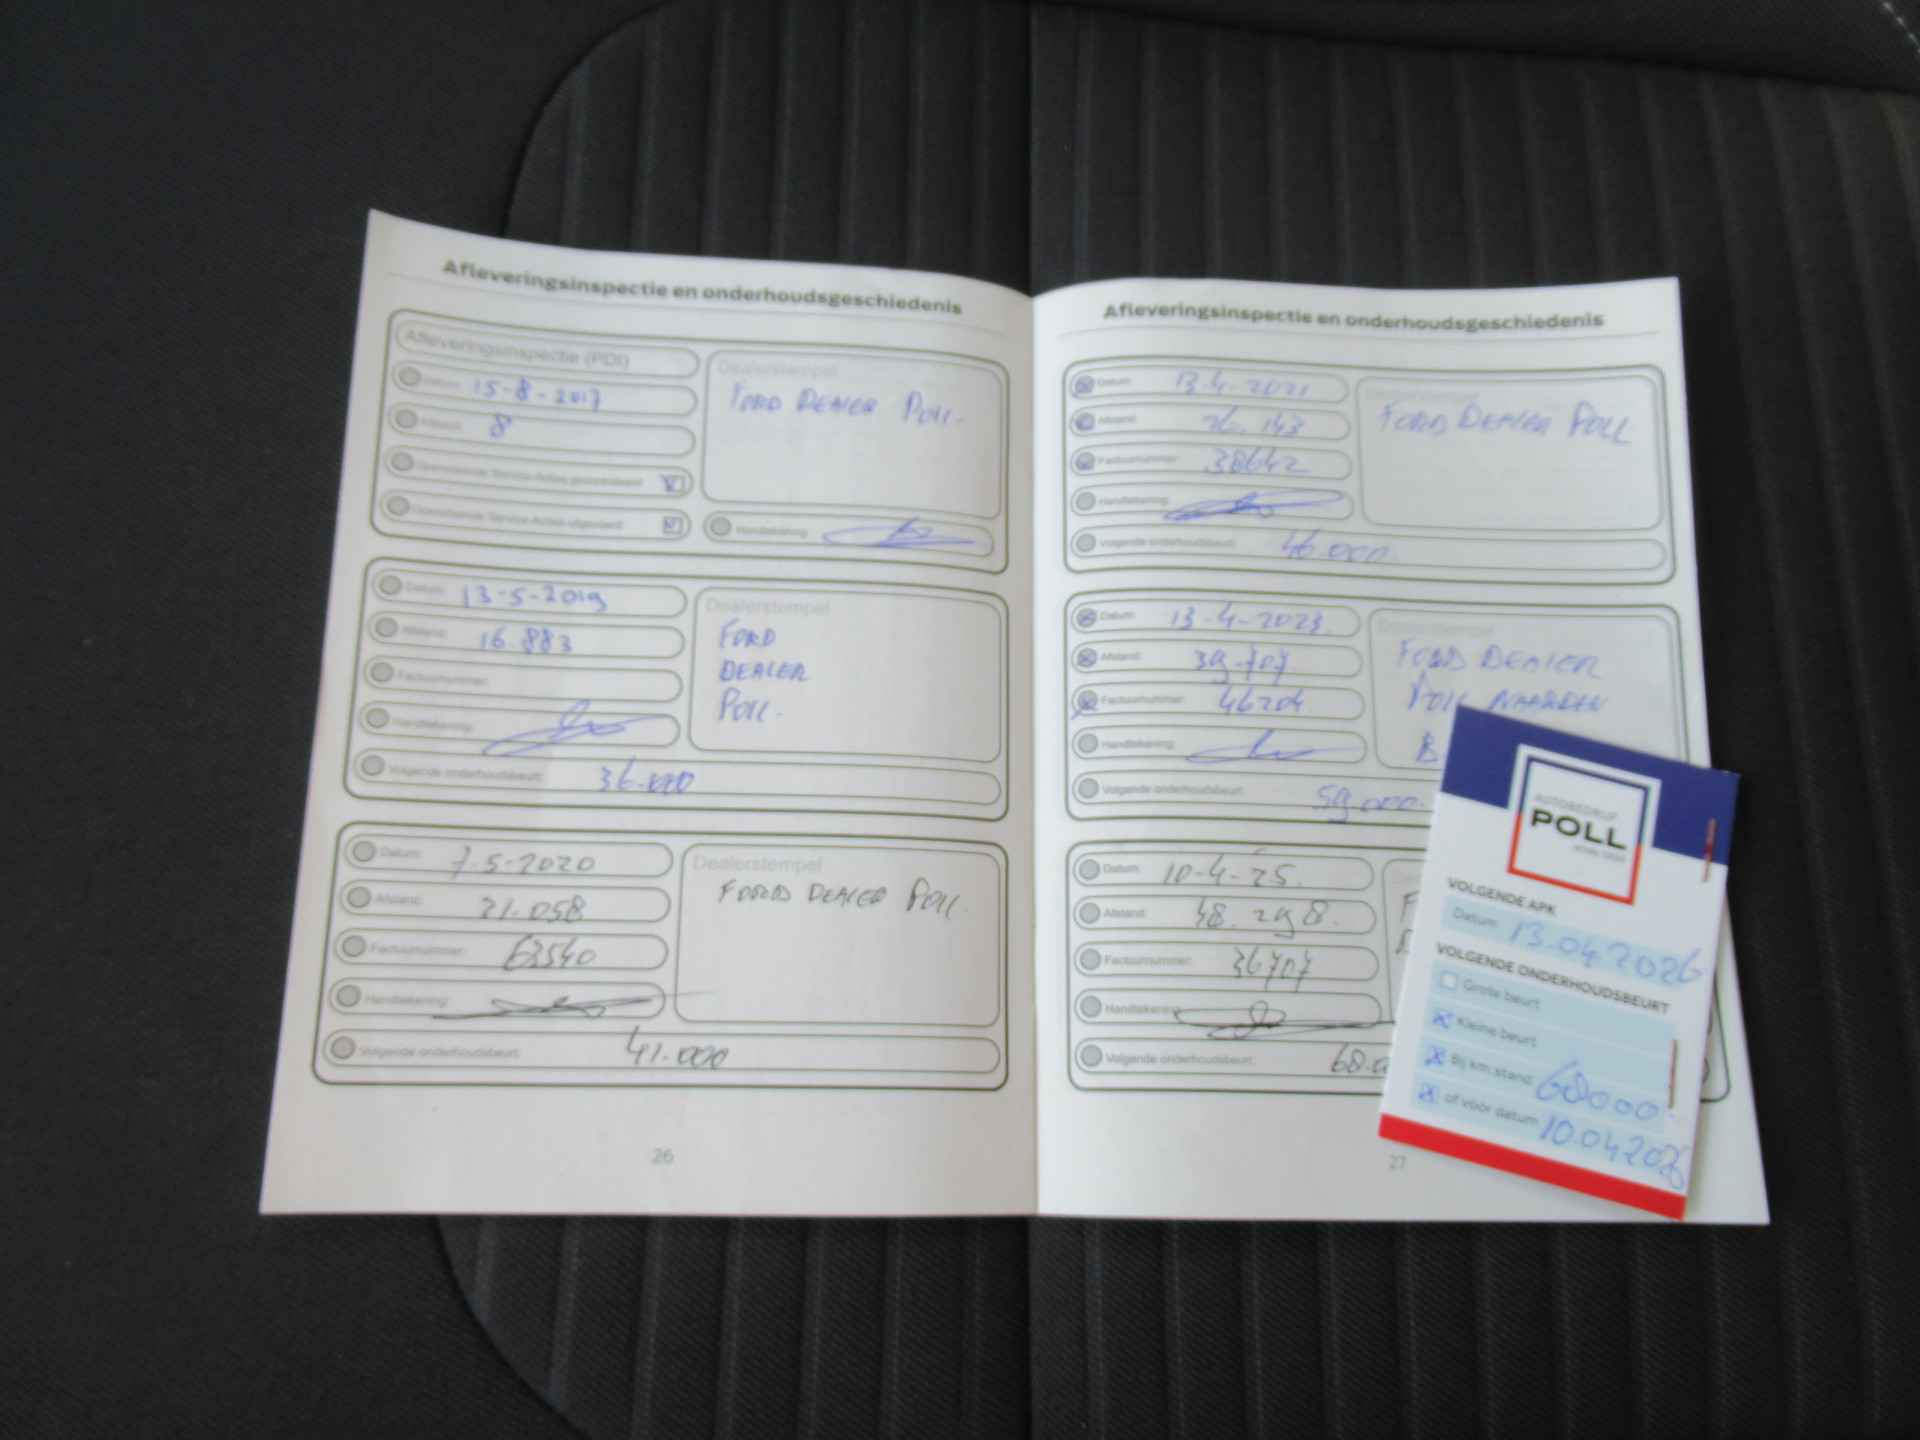 Afleveringsinspectie en onderhoudsgeschiedenis
Afleveringsinspectie (PDI)
Datum: 15-8-2017
Afstand: 8
Dealerstempel
FORD DEALER POLL.
Handtekening:
Datum: 13-5-2019
Afstand: 16.883
Factuurnummer:
Handtekening:
Volgende onderhoudsbeurt: 36.000
Dealerstempel
FORD
DEALER
POLL.
Datum: 7-5-2020
Afstand: 21.058
Factuurnummer: 63540
Handtekening:
Volgende onderhoudsbeurt: 41.000
Dealerstempel
FORD DEALER POLL.
26
Afleveringsinspectie en onderhoudsgeschiedenis
Datum: 13-4-2021
Afstand: 26.143
Factuurnummer: 38642
Handtekening:
Volgende onderhoudsbeurt: 46.000.
FORD DEALER POLL
Datum: 13-4-2023.
Afstand: 39.707
Factuurnummer: 46204
Handtekening:
Volgende onderhoudsbeurt: 59.000.
Dealerstempel
FORD DEALER
POLL NAARDEN
B
Datum: 10-4-25.
Afstand: 48.298.
Factuurnummer: 36707
Handtekening:
Volgende onderhoudsbeurt: 68.0
27
AUTOBEDRIJF
POLL
VOLGENDE APK
Datum 13.04.2026
VOLGENDE ONDERHOUDSBEURT
Grote beurt
Kleine beurt
Bij km.stand: 68000
of vóór datum 10.04.202